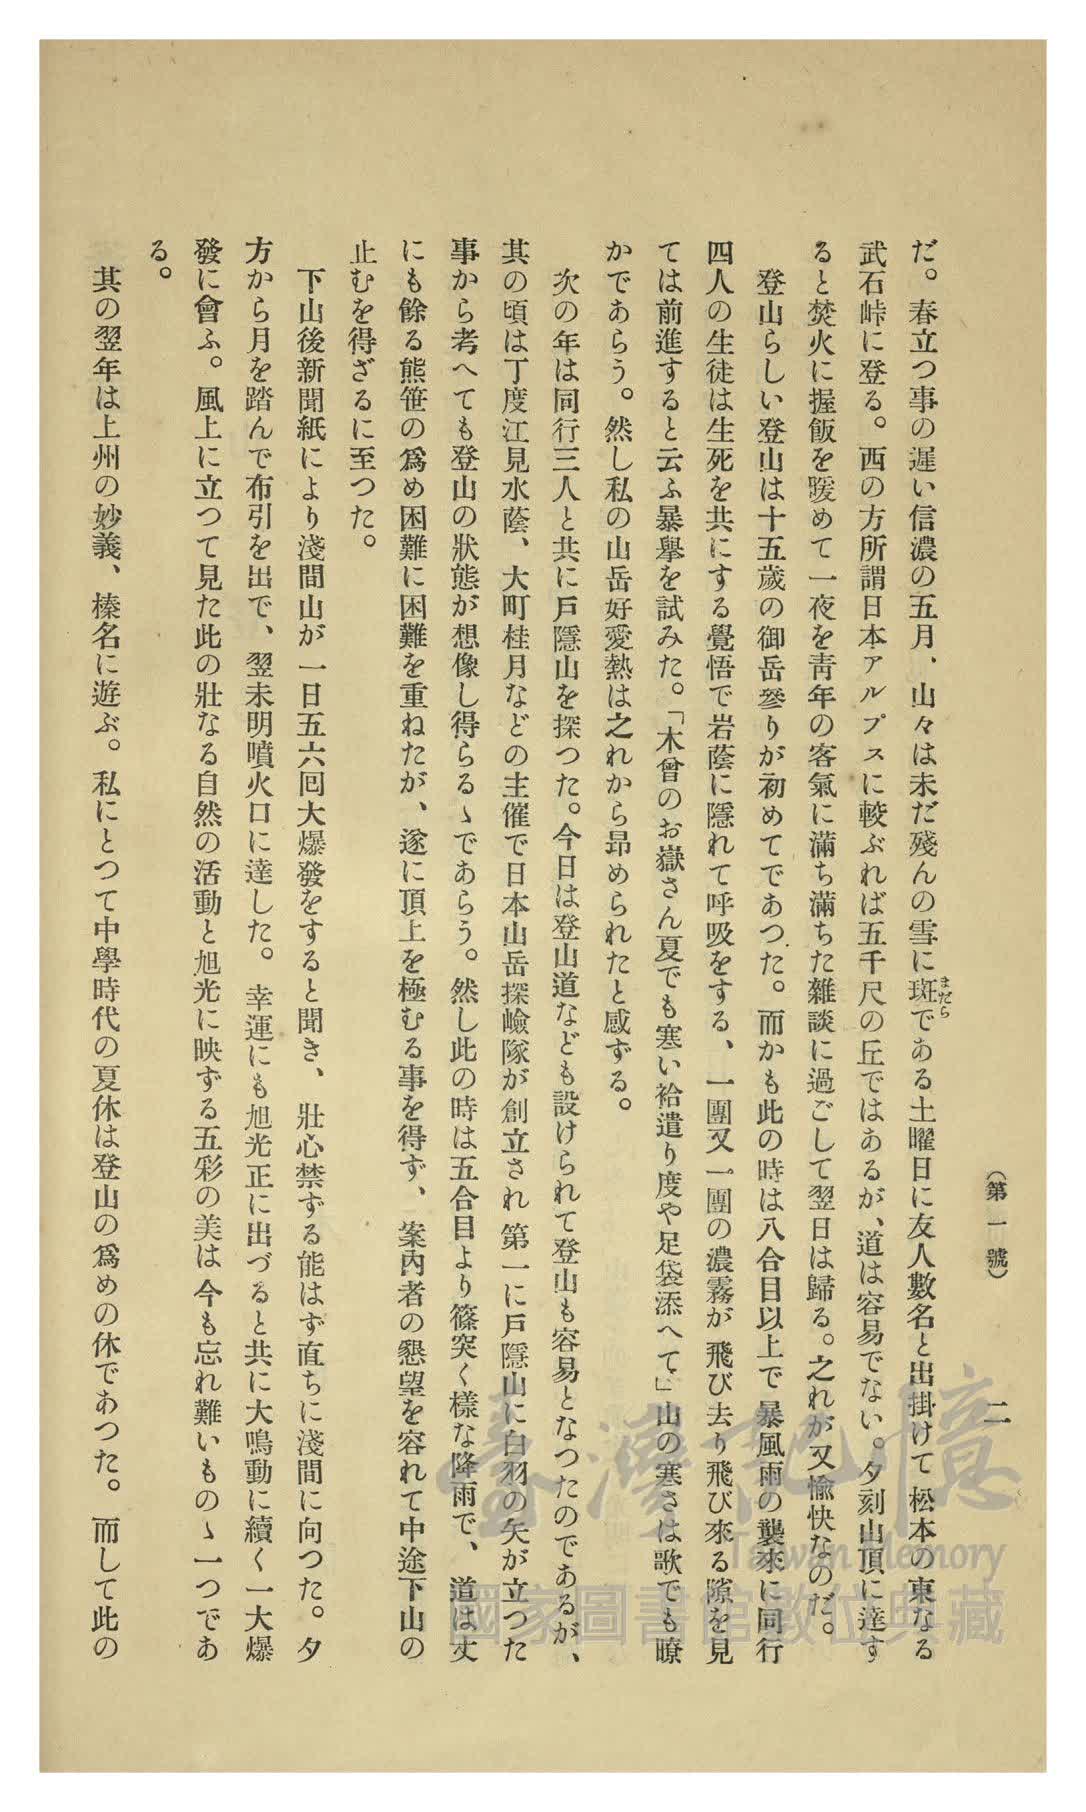 （第一號）
二
だ。春立つ事の遲い信濃の五月、山々は未だ殘んの雪に斑である土曜日に友人數名と出掛けて松本の東なる
まだら
武石峠に登る。西の方所謂日本アルプスに較ぶれば五千尺の丘ではあるが、道は容易でない。夕刻山頂に達す
ると焚火に握飯を暖めて一夜を青年の客氣に滿ち滿ちた雜談に過ごして翌日は歸る。之れが又愉快なのだ。
登山らしい登山は十五歲の御岳參りが初めてであつた。而かも此の時は八合目以上で暴風雨の襲來に同行
四人の生徒は生死を共にする覺悟で岩蔭に隱れて呼吸をする、一團又一團の濃霧が飛び去り飛び來る隙を見
ては前進すると云ふ暴擧を試みた。「木曾のお嶽さん夏でも寒い袷遣り度や足袋添へて」山の寒さは歌でも瞭
かであらう。然し私の山岳好愛熱は之れから昻められたと感ずる。
次の年は同行三人と共に戸隱山を探つた。今日は登山道なども設けられて登山も容易となつたのであるが、
其の頃は丁度江見水蔭、大町桂月などの主催で日本山岳探嶮隊が創立され第一に戸隱山に白羽の矢が立つた
事から考へても登山の狀態が想像し得らるゝであらう。然し此の時は五合目より篠突く樣な降雨で、道は丈
にも餘る熊笹の爲め困難に困難を重ねたが、遂に頂上を極むる事を得ず、案內者の懇望を容れて中途下山の
止むを得ざるに至つた。
下山後新聞紙により淺間山が一日五六回大爆發をすると聞き、壯心禁ずる能はず直ちに淺間に向つた。夕
方から月を踏んで布引を出で、翌未明噴火口に達した。幸運にも旭光正に出づると共に大鳴動に續く一大爆
發に會ふ。風上に立つて見た此の壯なる自然の活動と旭光に映ずる五彩の美は今も忘れ難いものゝ一つであ
る。
其の翌年は上州の妙義、榛名に遊ぶ。私にとつて中學時代の夏休は登山の爲めの休であつた。而して此の
臺灣記憶
Taiwan Memory
國家圖書館數位典藏